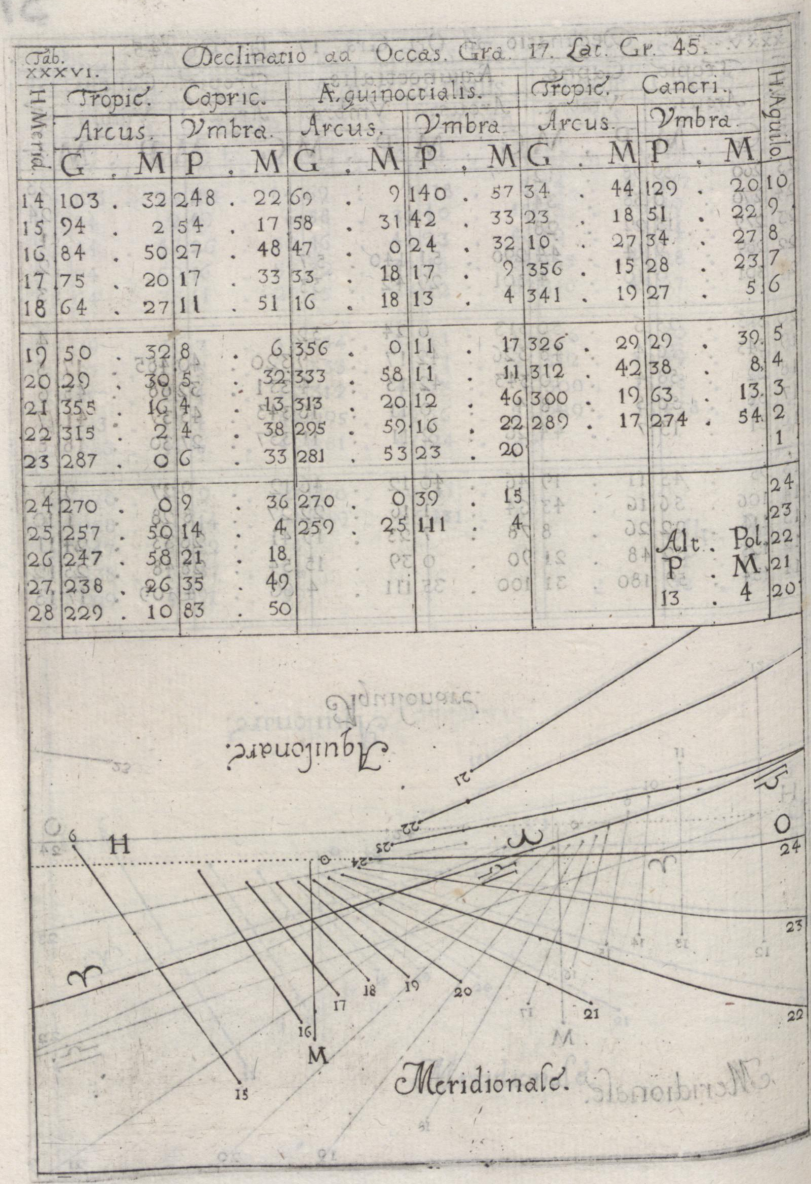 Tab. XXXVI. Declinatio ad Occas. Gra. 17. Lat. Gr. 45.
H. Merid. Tropic. Capric. Æquinoctialis. Tropic. Cancri. H. Aquilo
Arcus. Vmbra. Arcus. Vmbra. Arcus. Vmbra.
G . M P . M G . M P . M G . M P . M
14 103 . 32 248 . 22 69 . 9 140 . 57 34 . 44 129 . 20 10
15 94 . 2 54 . 17 58 . 31 42 . 33 23 . 18 51 . 22 9
16 84 . 50 27 . 48 47 . 0 24 . 32 10 . 27 34 . 27 8
17 75 . 20 17 . 33 33 . 18 17 . 9 356 . 15 28 . 23 7
18 64 . 27 11 . 51 16 . 18 13 . 4 341 . 19 27 . 5 6
19 50 . 32 8 . 6 356 . 0 11 . 17 326 . 29 29 . 39 5
20 29 . 30 5 . 32 333 . 58 11 . 11 312 . 42 38 . 8 4
21 355 . 16 4 . 13 313 . 20 12 . 46 300 . 19 63 . 13 3
22 315 . 2 4 . 38 295 . 59 16 . 22 289 . 17 274 . 54 2
23 287 . 0 6 . 33 281 . 53 23 . 20 1
24 270 . 0 9 . 36 270 . 0 39 . 15 24
25 257 . 50 14 . 4 259 . 25 111 . 4 23
26 247 . 58 21 . 18 Alt. Pol. 22
27 238 . 26 35 . 49 P . M 21
28 229 . 10 83 . 50 13 . 4 20
Aquilonare.
21
22
25
♎
6 H 24 ♈ O
♎ 24
23
♈
18 19 20
17 21 22
16
M
15
Meridionale.